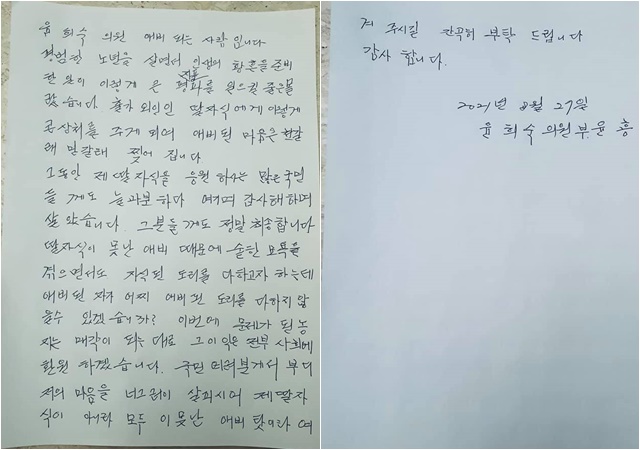 윤 희숙 의원 애비 되는 사람 입니다
평범한 노년을 살면서 인생의 황혼을 준비
한 일이 이렇게 큰 평지풍파를 일으킬 줄은몰
랐습니다 출가 외인인 딸자식에게 이렇게
큰상처를 주게 되여 애비된 마음은 천갈
래 만갈래 찢어 집니다
그동안 제 딸자식을 응원 하시는 많은국민
들 께도 늘과분하다 여기며 감사해하며
살았습니다. 그분들께도 정말 죄송합니다
딸자식이 못난 애비 때문에 숱한 모욕을
겪으면서도 자식된 도리를 다하고자 하는데
애비된 자가 어찌 애비된 도리를 다하지 않
을수 있겠습니까? 이번에 문제가 된 농
지는 매각이 되는 대로 그 이익은 전부 사회에
환원 하겠습니다. 국민 여러분께서 부디
저의 마음을 너그러이 살피시여 제 딸자
식이 아니라 모두 이 못난 애비 탓이라 여
겨 주시길 간곡히 부탁 드립니다
감사 합니다.
2021년 8월 27일
윤 희숙의원 부 윤 홍